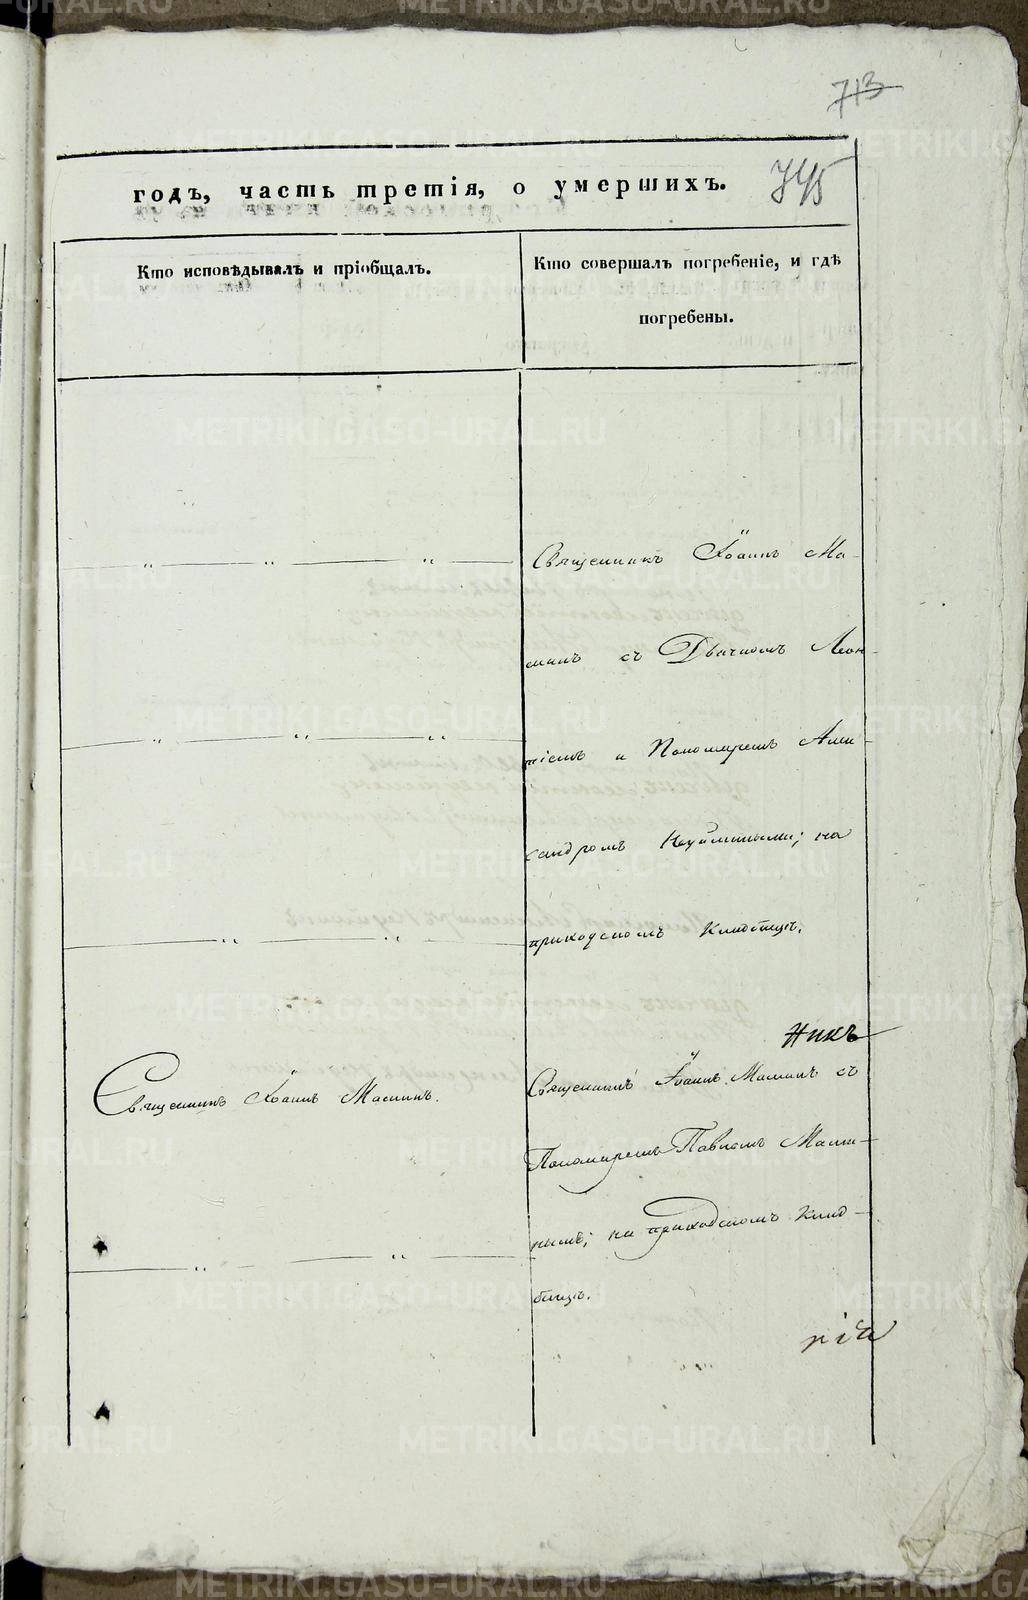 713
745
годъ, часть третія, о умершихъ.
Кто исповѣдывалъ и пріобщалъ.
Кто совершалъ погребеніе, и гдѣ
погребены.
Священникъ Іоаннъ Ма-
минъ съ Дьячкомъ Леон-
тіемъ и Пономаремъ Алек-
сандромъ; на
приходскомъ Кладбищѣ.
никъ
Священникъ Іоаннъ Маминъ.
Священникъ Іоаннъ Маминъ съ
Пономаремъ Павломъ Мами-
нымъ; на приходскомъ Клад-
бищѣ.
METRIKI.GASO-URAL.RU